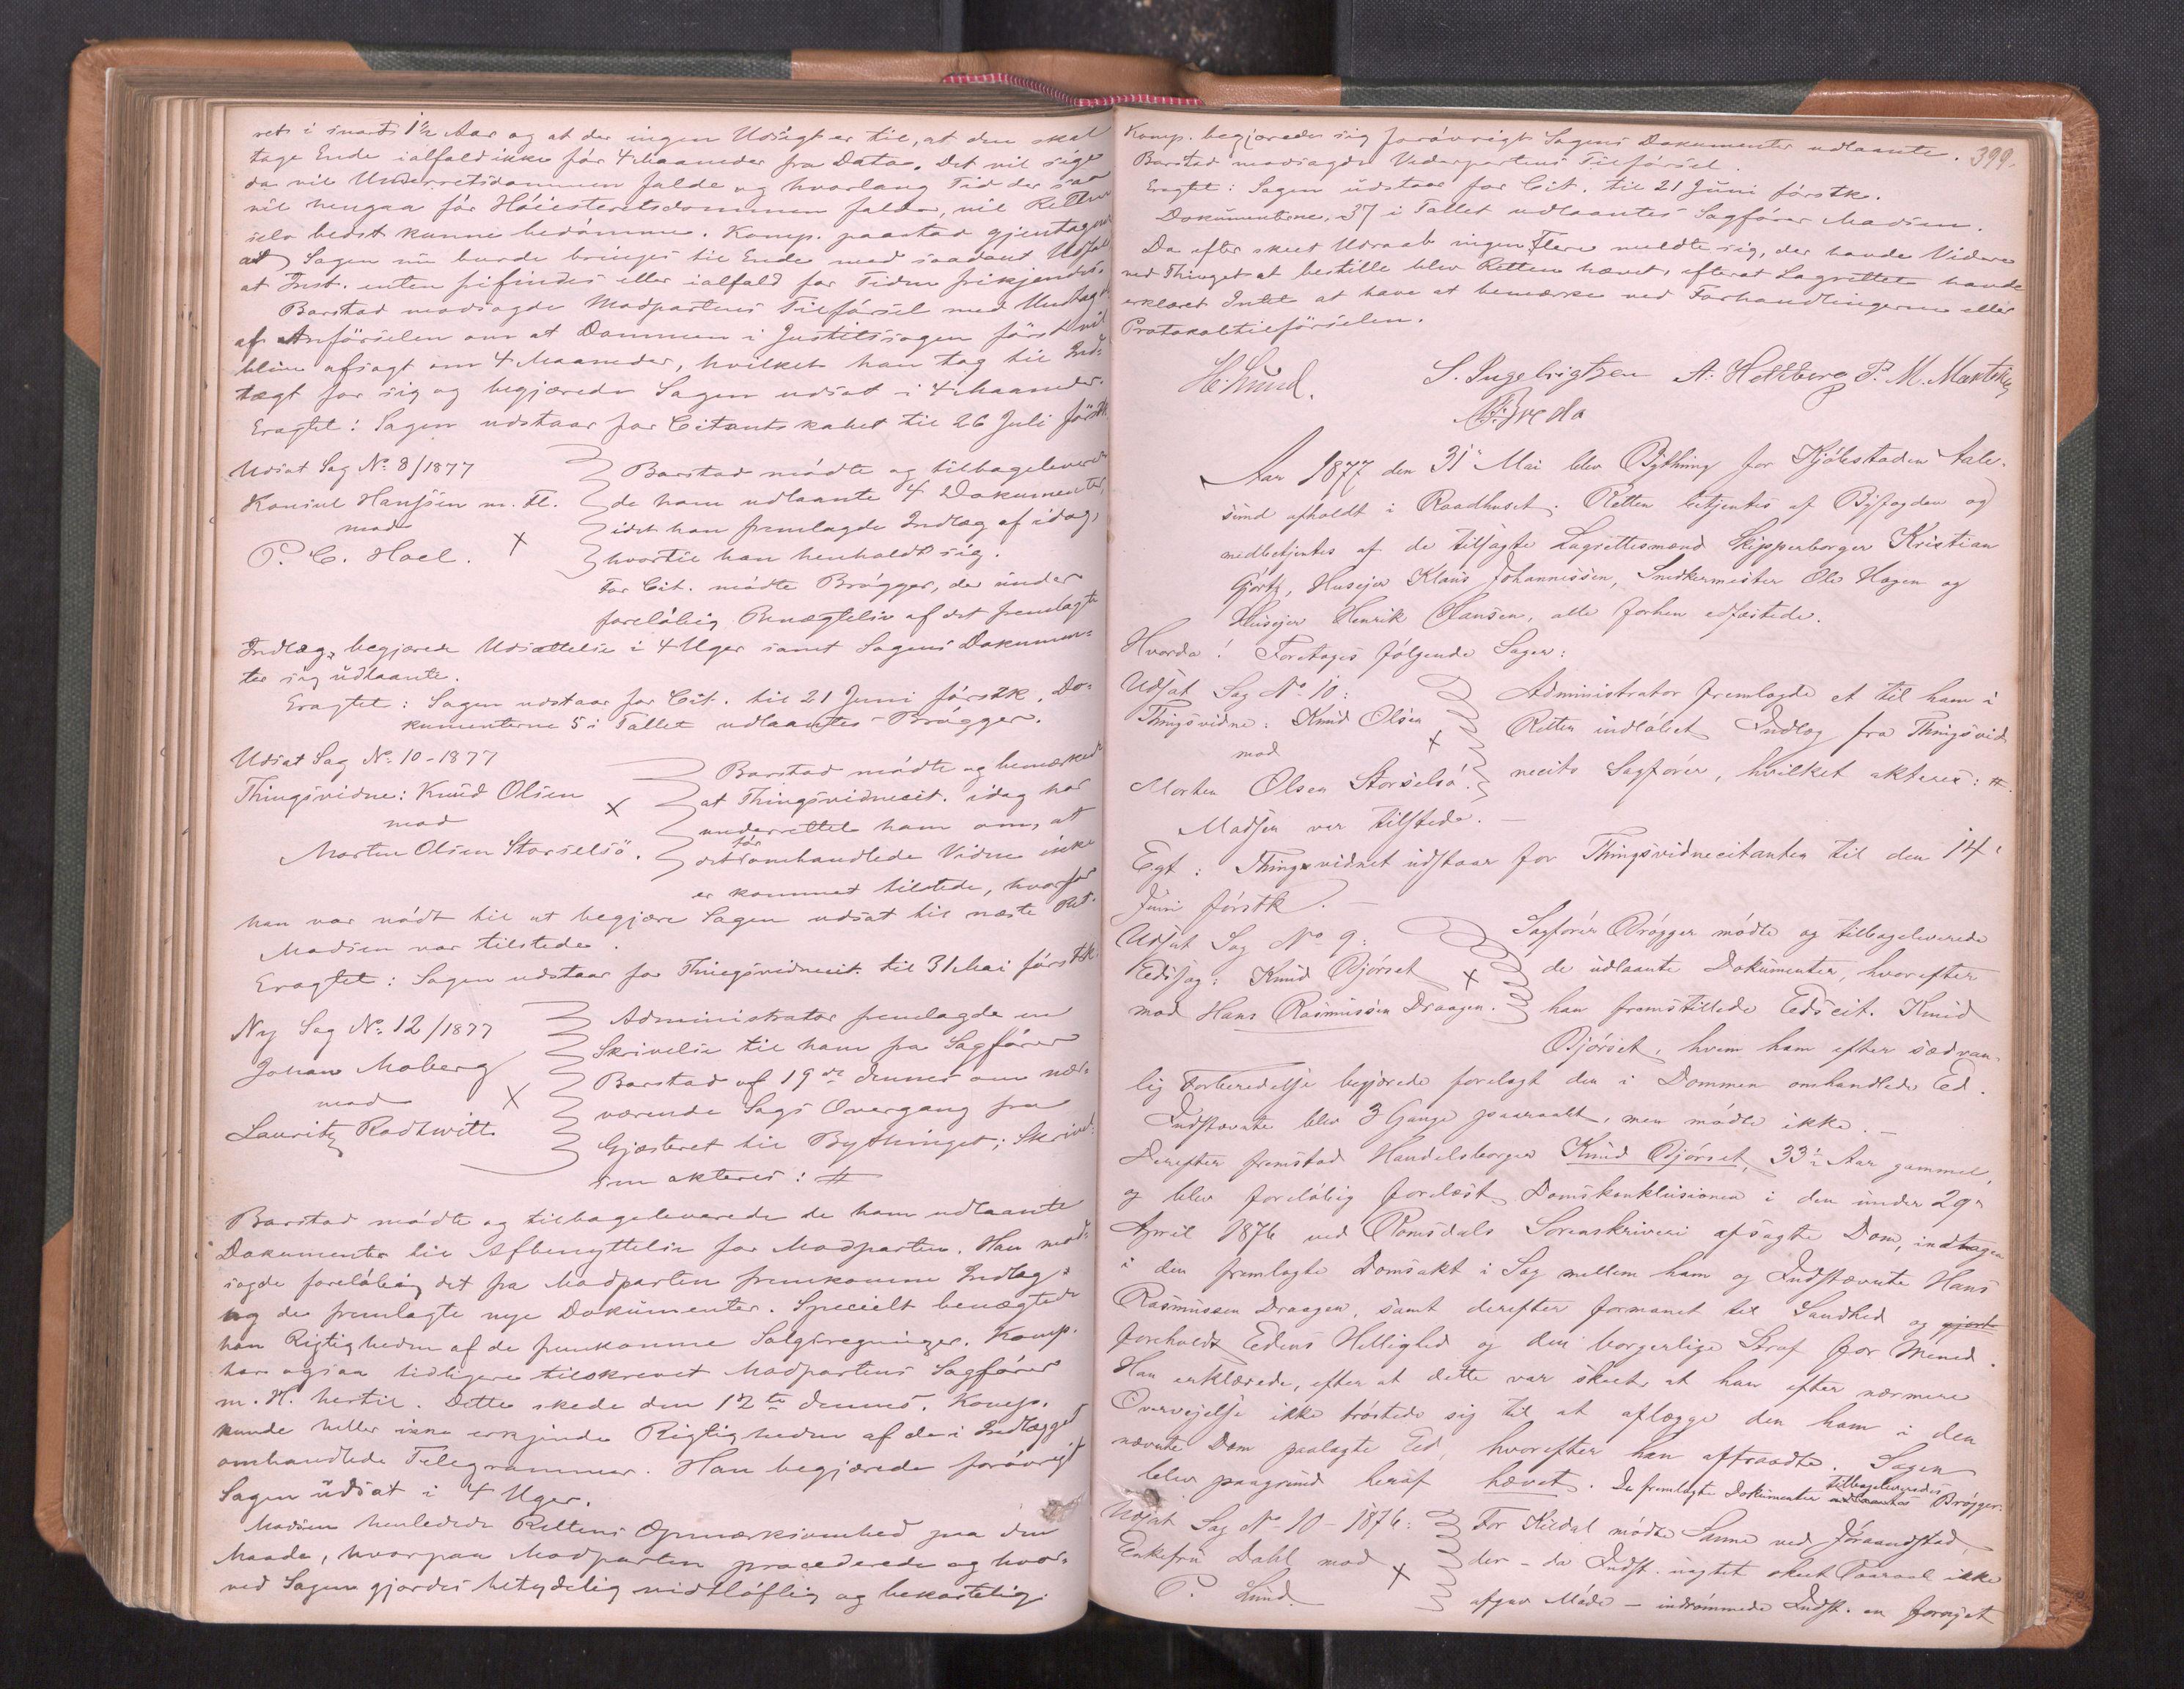 ret i snart 1½ Aar og at der ingen Udsigt er til, at den skal
tage Ende ialfald ikke før 4 Maaneder fra Dato. Det vil sige
da vil Underretsdommen falde og hvorlang Tid der saa
vil hengaa før Høiesteretsdommen falder, vil Retten
selv bedst kunne bedømme. Komp. paastod gjentagende
at Sagen nu burde bringes til Ende med saadant Udfald
at Indst. enten frifindes eller ialfald for Tiden frikjendes.
Barstad modsagde Modpartens Tilførsel med Undtagelse
af Anførselen om at Dommen i Justitssagen først vil
blive afsagt om 4 Maaneder, hvilket han tog til Ind-
tægt for sig og begjærede Sagen udsat i 4 Maaneder.
Eragtet: Sagen udstaar for Citantskabet til 26 Juli førstk.
Udsat Sag No. 8/1877
Konsul Hanssen m. fl.
mod
P. C. Hoel.
Barstad mødte og tilbageleverede
de ham udlaante 4 Dokumenter,
idet han fremlagde Indlæg af idag,
hvortil han henholdt sig.
For Cit. mødte Brøgger, der under
foreløbig Benægtelse af det fremlagte
Indlæg, begjærede Udsættelse i 4 Uger samt Sagens Dokumen-
ter sig udlaante.
Eragtet: Sagen udstaar for Cit. til 21 Juni førstk. Do-
kumenterne 5 i Tallet udlaantes Brøgger.
Udsat Sag No. 10-1877
Thingsvidne: Knud Olsen
mod
Morten Olsen Storselsö.
Barstad mødte og bemærkede
at Thingsvidnecit. idag har
underrettet ham om, at
det før omhandlede Vidne ikke
er kommet tilstede, hvorfor
han var nødt til at begjære Sagen udsat til næste Ret.
Madsen var tilstede.
Eragtet: Sagen udstaar for Thingsvidnecit. til 31 Mai førstk.
Ny Sag No. 12/1877
Johan Moberg
mod
Lauritz Rodtwitt
Administrator fremlagde en
Skrivelse til ham fra Sagfører
Barstad af 19de dennes om nær-
værende Sags Overgang fra
Gjæsteret til Bythinget; Skrivel-
sen akteres: #
Barstad mødte og tilbageleverede de ham udlaante
Dokumenter til Afbenyttelse for Modparten. Han mod-
sagde foreløbig det fra Modparten fremkomne Indlæg
og de fremlagte nye Dokumenter. Specielt benægtede
han Rigtigheden af de fremkomne Salgsregninger. Komp.
har ogsaa tidligere tilskrevet Modpartens Sagfører
m. H. hertil. Dette skede den 12te dennes. Komp.
kunde heller ikke erkjende Rigtigheden af de i Indlægget
omhandlede Telegrammer. Han begjærede forøvrigt
Sagen udsat i 4 Uger.
Madsen henledede Rettens Opmærksomhed paa den
Maade, hvorpaa Modparten procederede og hvor-
ved Sagen gjordes betydelig vidtløftig og bekostelig.
399.
Komp. begjærede sig forøvrigt Sagens Dokumenter udlaante.
Barstad modsagde Vederpartens Tilførsel.
Eragtet: Sagen udstaar for Cit. til 21 Juni førstk.
Dokumenterne, 37 i Tallet udlaantes Sagfører Madsen.
Da efter skeet Udraab ingen Flere meldte sig, der havde Videre
ved Thinget at bestille blev Retten hævet, efterat Lagrettet havde
erklæret Intet at have at bemærke ved Forhandlingerne eller
Protokoltilførselen.
H. Lund. S. Ingebrigtsen A. Holtberg P. M.
Breda
Aar 1877 den 31te Mai blev Bything for Kjøbstaden Aale-
sund afholdt i Raadhuset. Retten betjentes af Byfogden og
medbetjentes af de tilsagte Lagrettesmænd Skipperborger Kristian
Gjørtz, Husejer Klaus Johannessen, Snedkermester Ole Hagen og
Husejer Henrik Hansen, alle forhen edfæstede.
Hvorda! Foretages følgende Sager:
Udsat Sag No 10:
Thingsvidne: Knud Olsen
mod
Morten Olsen Storselsø.
Administrator fremlagde et til ham i
Retten indløbet Indlæg fra Thingsvid-
necits Sagfører, hvilket akteres: #.
Madsen var tilstede. —
Egt: Thingsvidnet udstaar for Thingsvidnecitanten til den 14'
Juni førstk. —
Udsat Sag No 9:
Edssag: Knud Bjørset
mod Hans Rasmussen Draagen.
Sagfører Brøgger mødte og tilbageleverede
de udlaante Dokumenter, hvorefter
han fremstillede Edscit. Knud
Bjørset, hvem han efter sædvan-
lig Forberedelse begjærede forelagt den i Dommen omhandlede Ed.
Indstævnte blev 3 Gange paaraabt, men mødte ikke. —
Derefter fremstod Handelsborger Knud Bjørset, 33½ Aar gammel,
og blev foreløbig forelæst Domskonklusionen i den under 29'
April 1876 ved Romsdals Sorenskriveri afsagte Dom, indtagen
i den fremlagte Domsakt i Sag mellem ham og Indstævnte Hans
Rasmussen Draagen, samt derefter formanet til Sandhed og gjort
foreholdt Edens Hellighed og den borgerlige Straf for Mened.
Han erklærede, efter at dette var skeet, at han efter nærmere
Overvejelse ikke trøstede sig til at aflægge den ham i den
nævnte Dom paalagte Ed, hvorefter han aftraadte. Sagen
blev paagrund heraf hævet. De fremlagte Dokumenter udlaantes tilbageleveredes Brøgger.
Udsat Sag No 10-1876:
Enkefru Dahl mod
P. Lund.
For Kildal mødte Sanne ved Jøraandstad,
der – da Indst. uagtet skeet Paaraab ikke
afgav Møde – indrømmede Indst. en fornyet